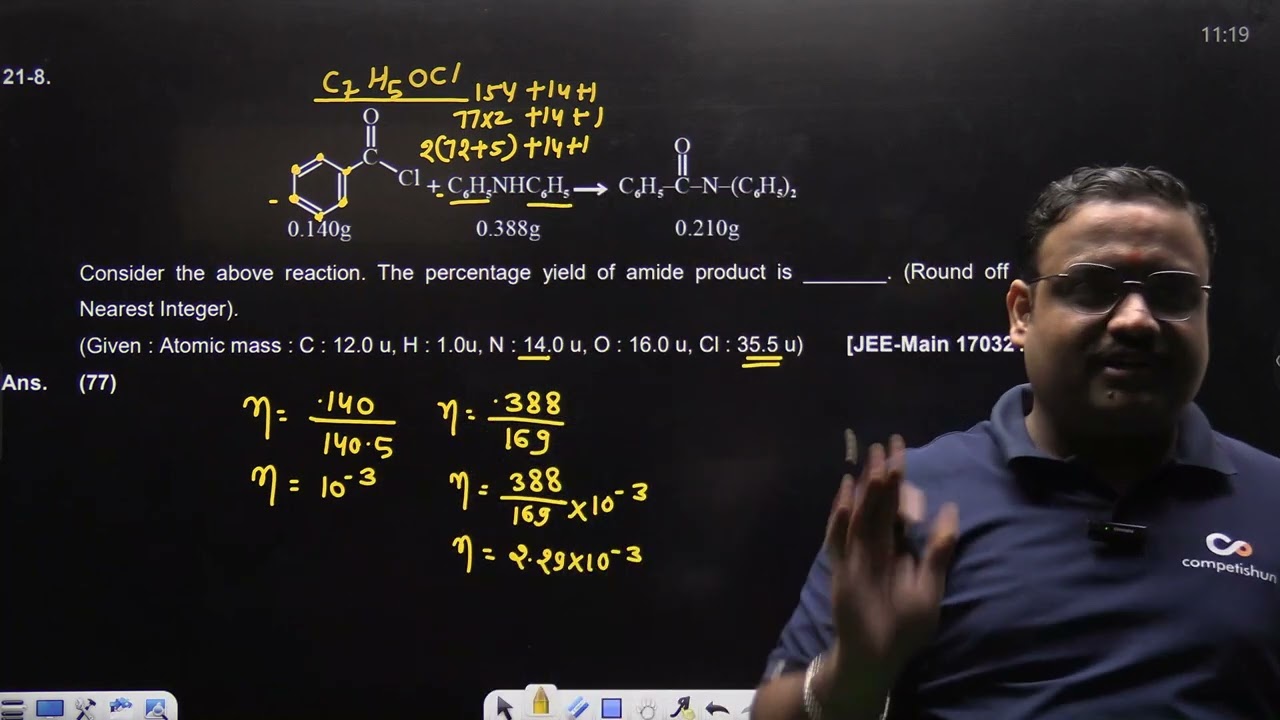 11:19
21-8.
C7 H5OCl
154 +14+1
77x2 +14+1
2(72+5) +14+1
O
C
Cl + C₆H₅NHC₆H₅ → C₆H₅–C–N–(C₆H₅)₂
O
0.140g 0.388g 0.210g
Consider the above reaction. The percentage yield of amide product is _______. (Round off
Nearest Integer).
(Given : Atomic mass : C : 12.0 u, H : 1.0u, N : 14.0 u, O : 16.0 u, Cl : 35.5 u) [JEE-Main 17032
Ans. (77)
η = .140/140.5 η = .388/169
η = 10⁻³ η = 388/169 x10⁻³
η = 2.29x10⁻³
competishun